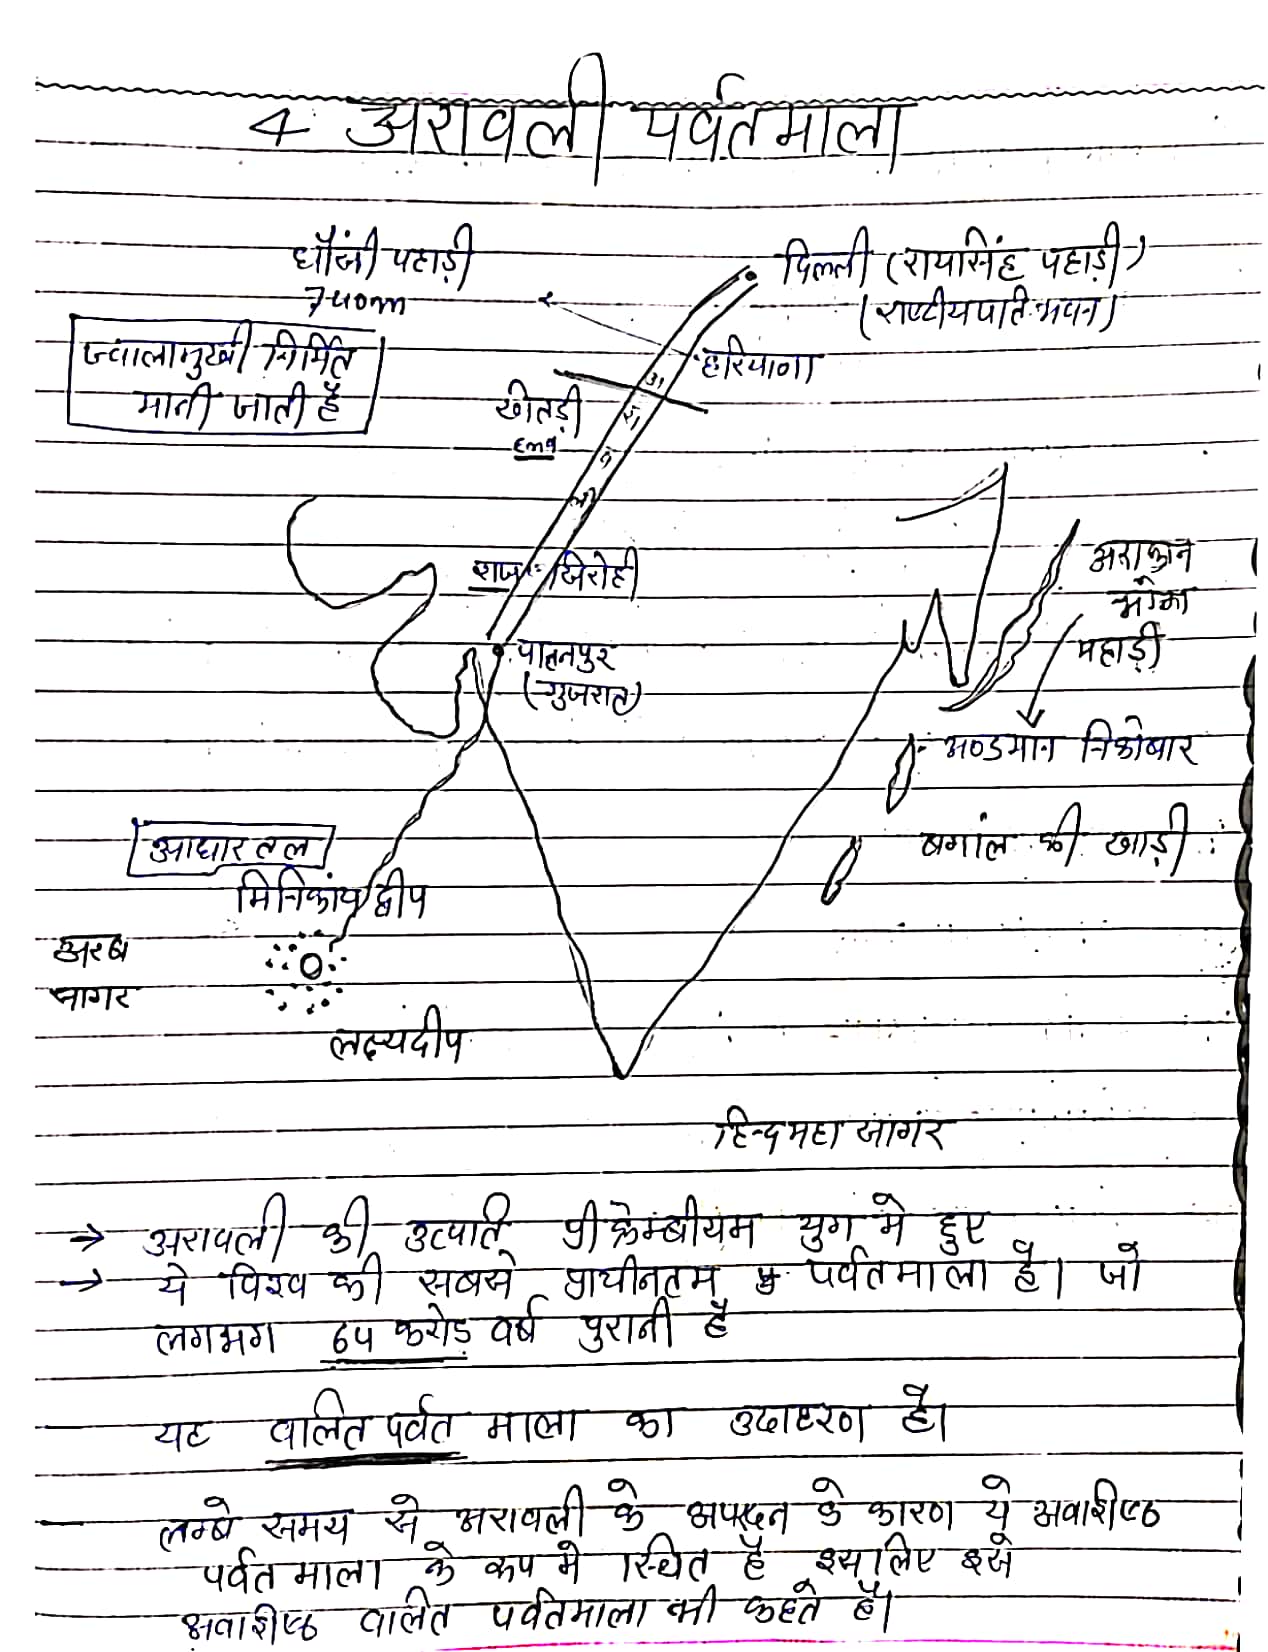 4 अरावली पर्वतमाला
धौजी पहाड़ी
740mm
दिल्ली (रायसिंह पहाड़ी)
(राष्टीयपति भवन)
ज्वालामुखी निर्मित
मानी जाती है
हरियाणा
खेतड़ी
अ
रा
व
ली
राज: सिरोही
पालनपुर
(गुजरात)
अराकान
योमा
पहाड़ी
अण्डमान निकोबार
बगांल की खाड़ी
आधार तल
मिनिकांय द्वीप
अरब
सागर
लक्ष्यदीप
हिन्द महा सागर
→ अरावली की उत्पति प्री केम्ब्रीयम युग मे हुए
→ ये विश्व की सबसे प्राचीनतम पर्वतमाला है। जो
लगभग 64 करोड़ वर्ष पुरानी है
यह वालित पर्वत माला का उदाहरण है।
लम्बे समय से अरावली के अपरदन के कारण ये अवाशिष्ठ
पर्वत माला के रूप मे स्थित है इसलिए इसे
अवाशिष्ठ वालित पर्वतमाला भी कहते है।